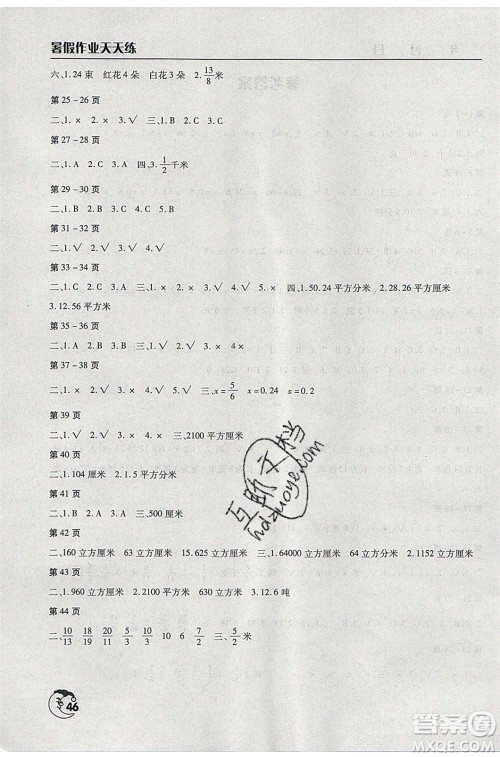 暑假作业天天练
六、1.24 束　红花 4 朵　白花 3 朵　2.13/8 米
第 25－26 页
二、1.×　2.×　3.√　三、1.A　2.C　3.A
第 27－28 页
二、1.A　2.A　四、1.√　2.√　3.×　四、1/2 千米
第 29－30 页
二、1.B　2.B　3.C　4.C
第 31－32 页
二、1.√　2.×　3.×　4.√　5.√
第 33－34 页
二、1.C　2.A　3.D　三、1.√　2.√　3.×　4.×　四、1.50.24 平方分米　2.28.26 平方厘米
3.12.56 平方厘米
第 35－36 页
二、1.×　2.×　3.√　4.×
第 37－38 页
二、1.×　2.√　3.×　4.√　5.×　三、x＝5/6　x＝0.24　x＝0.2
第 39 页
二、1.√　2.√　3.×　三、2100 平方厘米
第 40 页
二、1.104 厘米　2.1.5 平方分米
第 41 页
二、1.B　2.A　三、500 厘米
第 42 页
二、160 立方厘米　63 立方分米　15.625 立方米　三、1.64000 立方分米　2.1152 立方厘米
第 43 页
二、1.960 立方厘米　2.2100 平方分米　630 立方分米　3.12.6 吨
第 44 页
二、10/10　10/19　10　6　7/2　三、5/2 米
互助文档
hdzuoye.com
46
答案圈
MXQE.COM